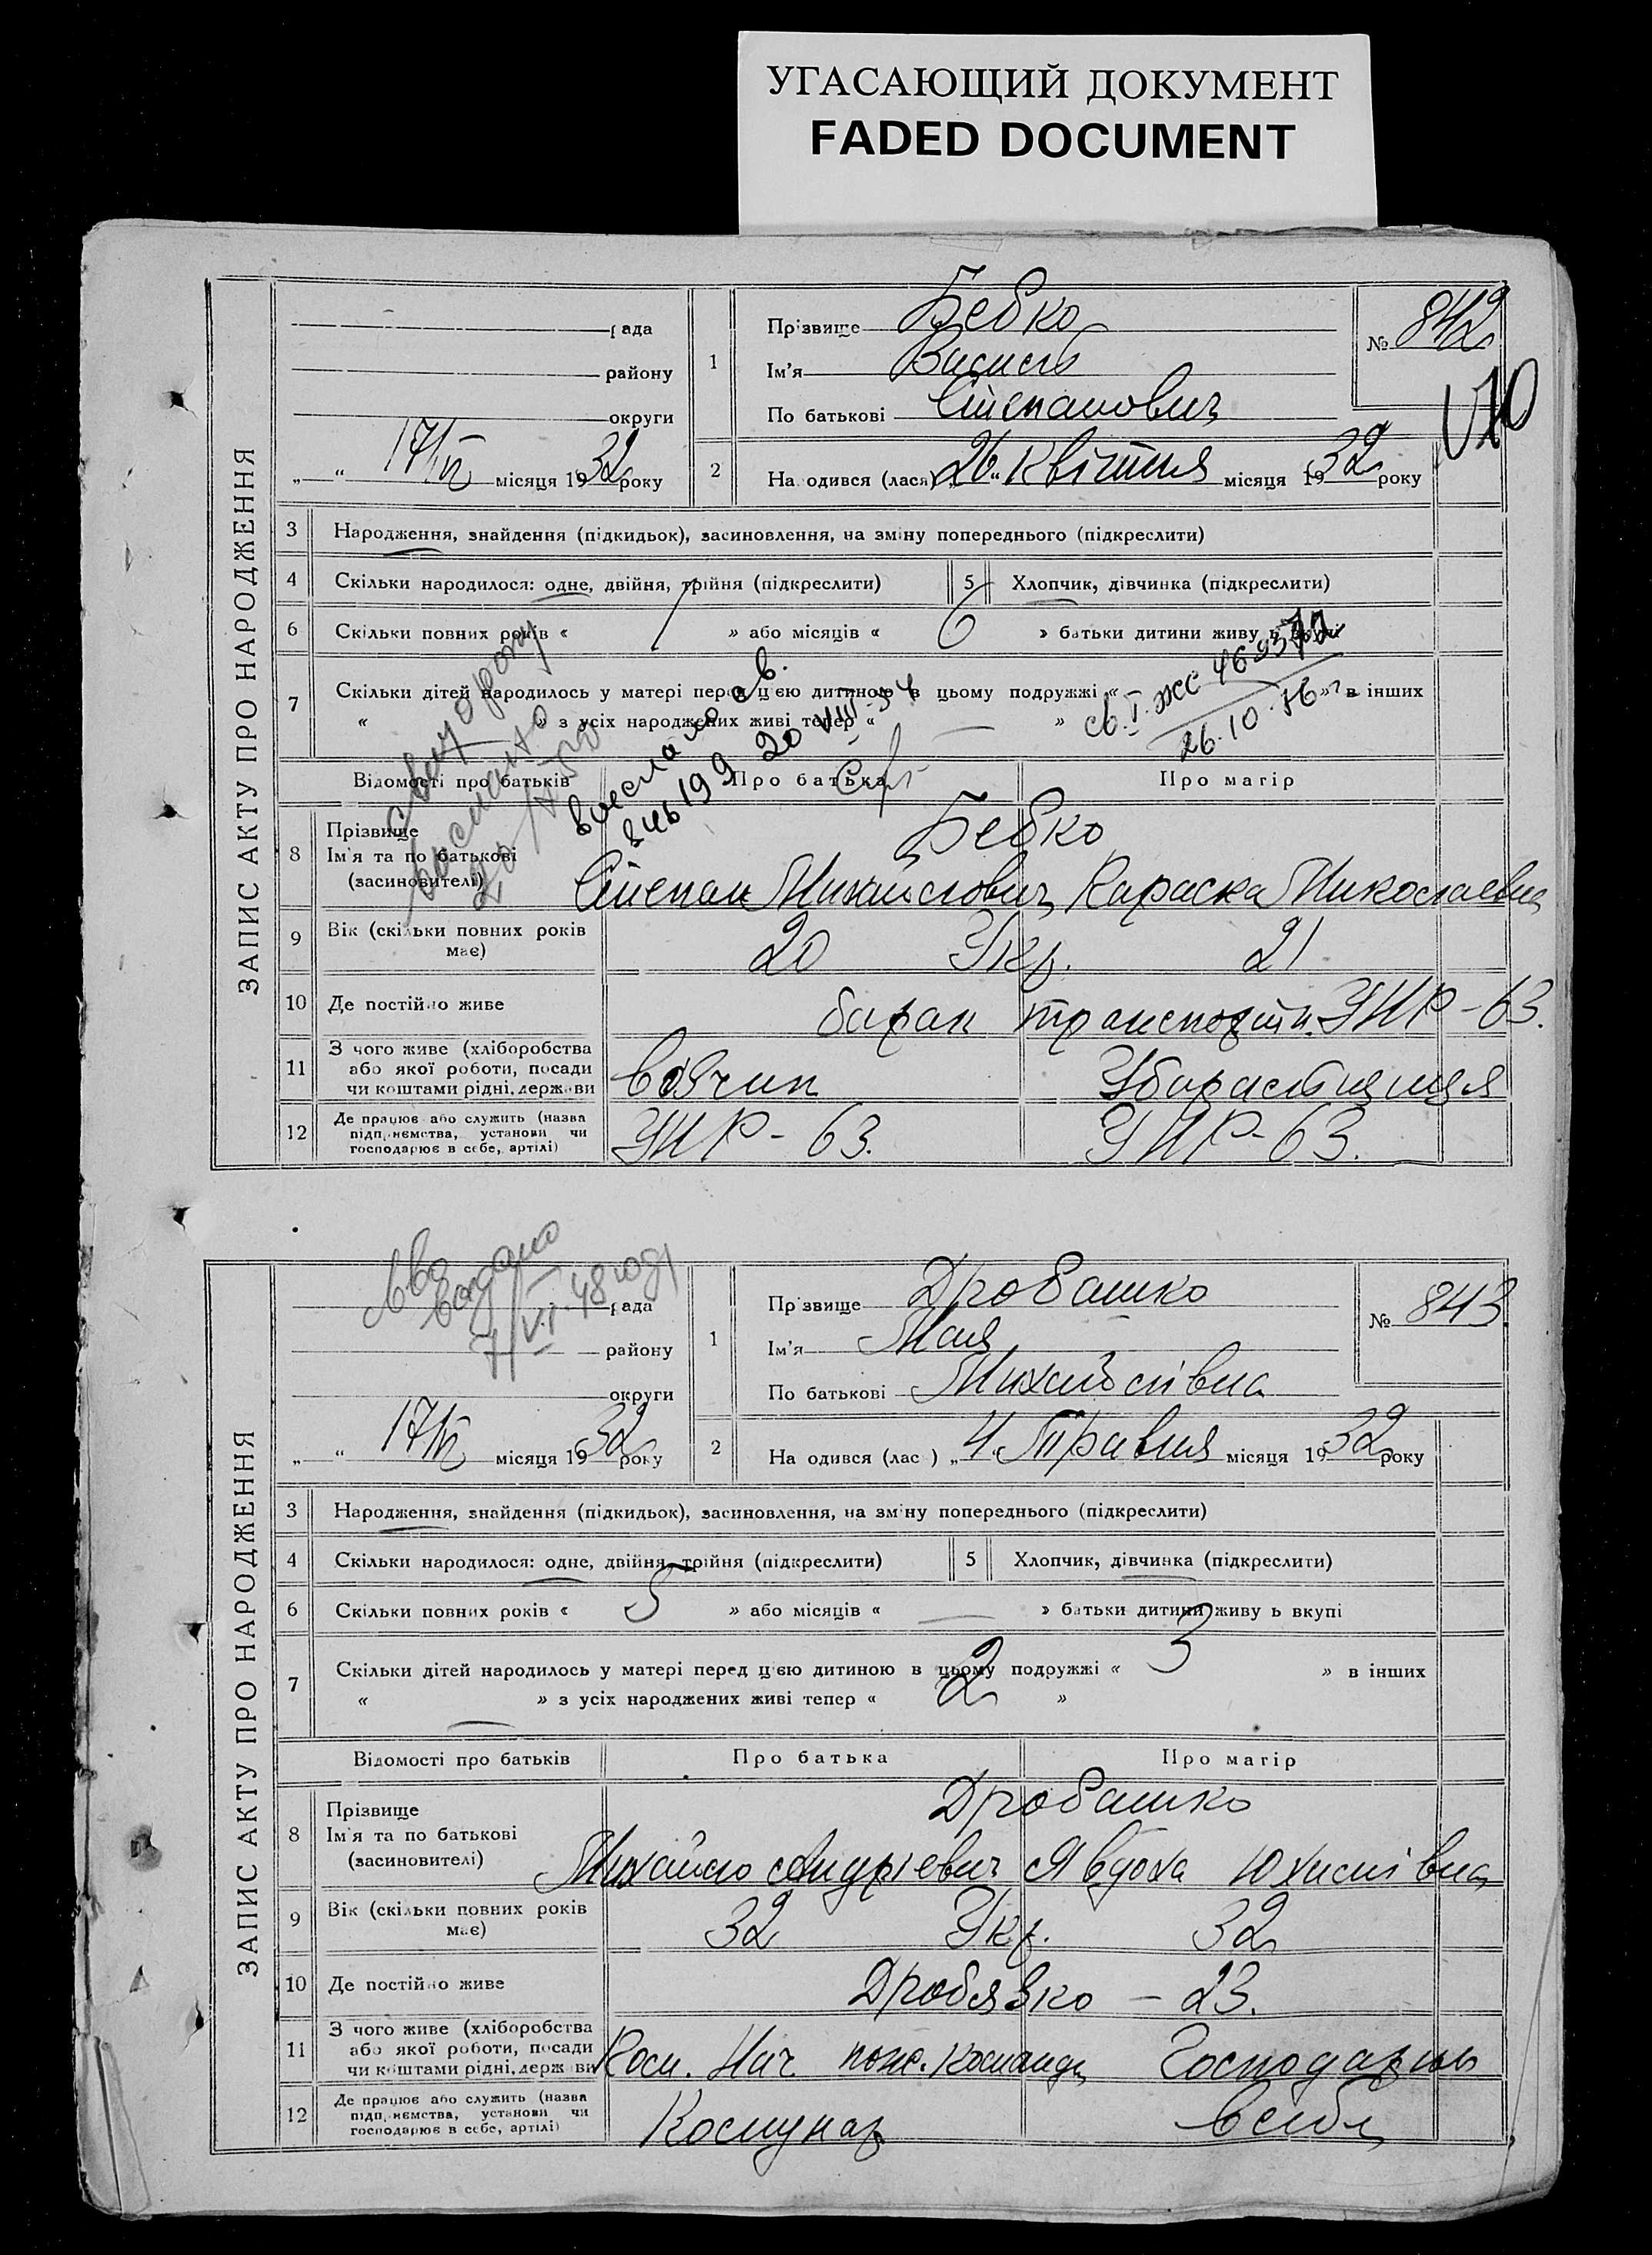 УГАСАЮЩИЙ ДОКУМЕНТ
FADED DOCUMENT
ЗАПИС АКТУ ПРО НАРОДЖЕННЯ
рада
району
округи
„ “ 17/V місяця 1932 року
1
Прізвище Бебко
Ім'я Василь
По батькові Степанович
№ 842
2
На одився (лася) 26 „ Квітня місяця 1932 року
3 Народження, знайдення (підкидьок), засиновлення, на зміну попереднього (підкреслити)
4 Скільки народилося: одне, двійня, трійня (підкреслити)
5 Хлопчик, дівчинка (підкреслити)
6 Скільки повних років « 1 » або місяців « 6 » батьки дитини живу ь вкупі
7 Скільки дітей народилось у матері перед цією дитиною в цьому подружжі « » в інших
« » з усіх народжених живі тепер « — »
26.10.76
Відомості про батьків Про батька Про матір
8 Прізвище
Ім'я та по батькові
(засиновителі)
Бебко
Степан Михайлович Параска Миколаевна
9 Вік (скільки повних років має)
20 Укр. 21
10 Де постійно живе
барак транспортн. УНР-63.
11 З чого живе (хліборобства
або якої роботи, посади
чи коштами рідні, держави
Возчик Уборастиця
12 Де працює або служить (назва
підприємства, установи чи
господарює в себе, артілі)
УНР-63. УНР-63.
ЗАПИС АКТУ ПРО НАРОДЖЕННЯ
рада
району
округи
„ “ 17/V місяця 1932 року
1
Прізвище Дробашко
Ім'я Мая
По батькові Михайлівна
№ 843
2
На одився (лас ) „ 4 „ Травня місяця 1932 року
3 Народження, знайдення (підкидьок), засиновлення, на зміну попереднього (підкреслити)
4 Скільки народилося: одне, двійня, трійня (підкреслити)
5 Хлопчик, дівчинка (підкреслити)
6 Скільки повних років « 5 » або місяців « — » батьки дитини живу ь вкупі
7 Скільки дітей народилось у матері перед цією дитиною в цьому подружжі « 3 » в інших
« — » з усіх народжених живі тепер « 2 »
Відомості про батьків Про батька Про матір
8 Прізвище
Ім'я та по батькові
(засиновителі)
Дробашко
Михайло Андрієвич Явдоха Юхимівна
9 Вік (скільки повних років має)
32 Укр. 32
10 Де постійно живе
Дробязко - 23.
11 З чого живе (хліборобства
або якої роботи, посади
чи коштами рідні, держави
Пом. Нач. пож. команди Господарює
12 Де працює або служить (назва
підприємства, установи чи
господарює в себе, артілі)
Комунар в себе